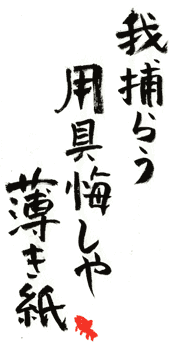 我、捕らう
用具悔しや
薄き紙